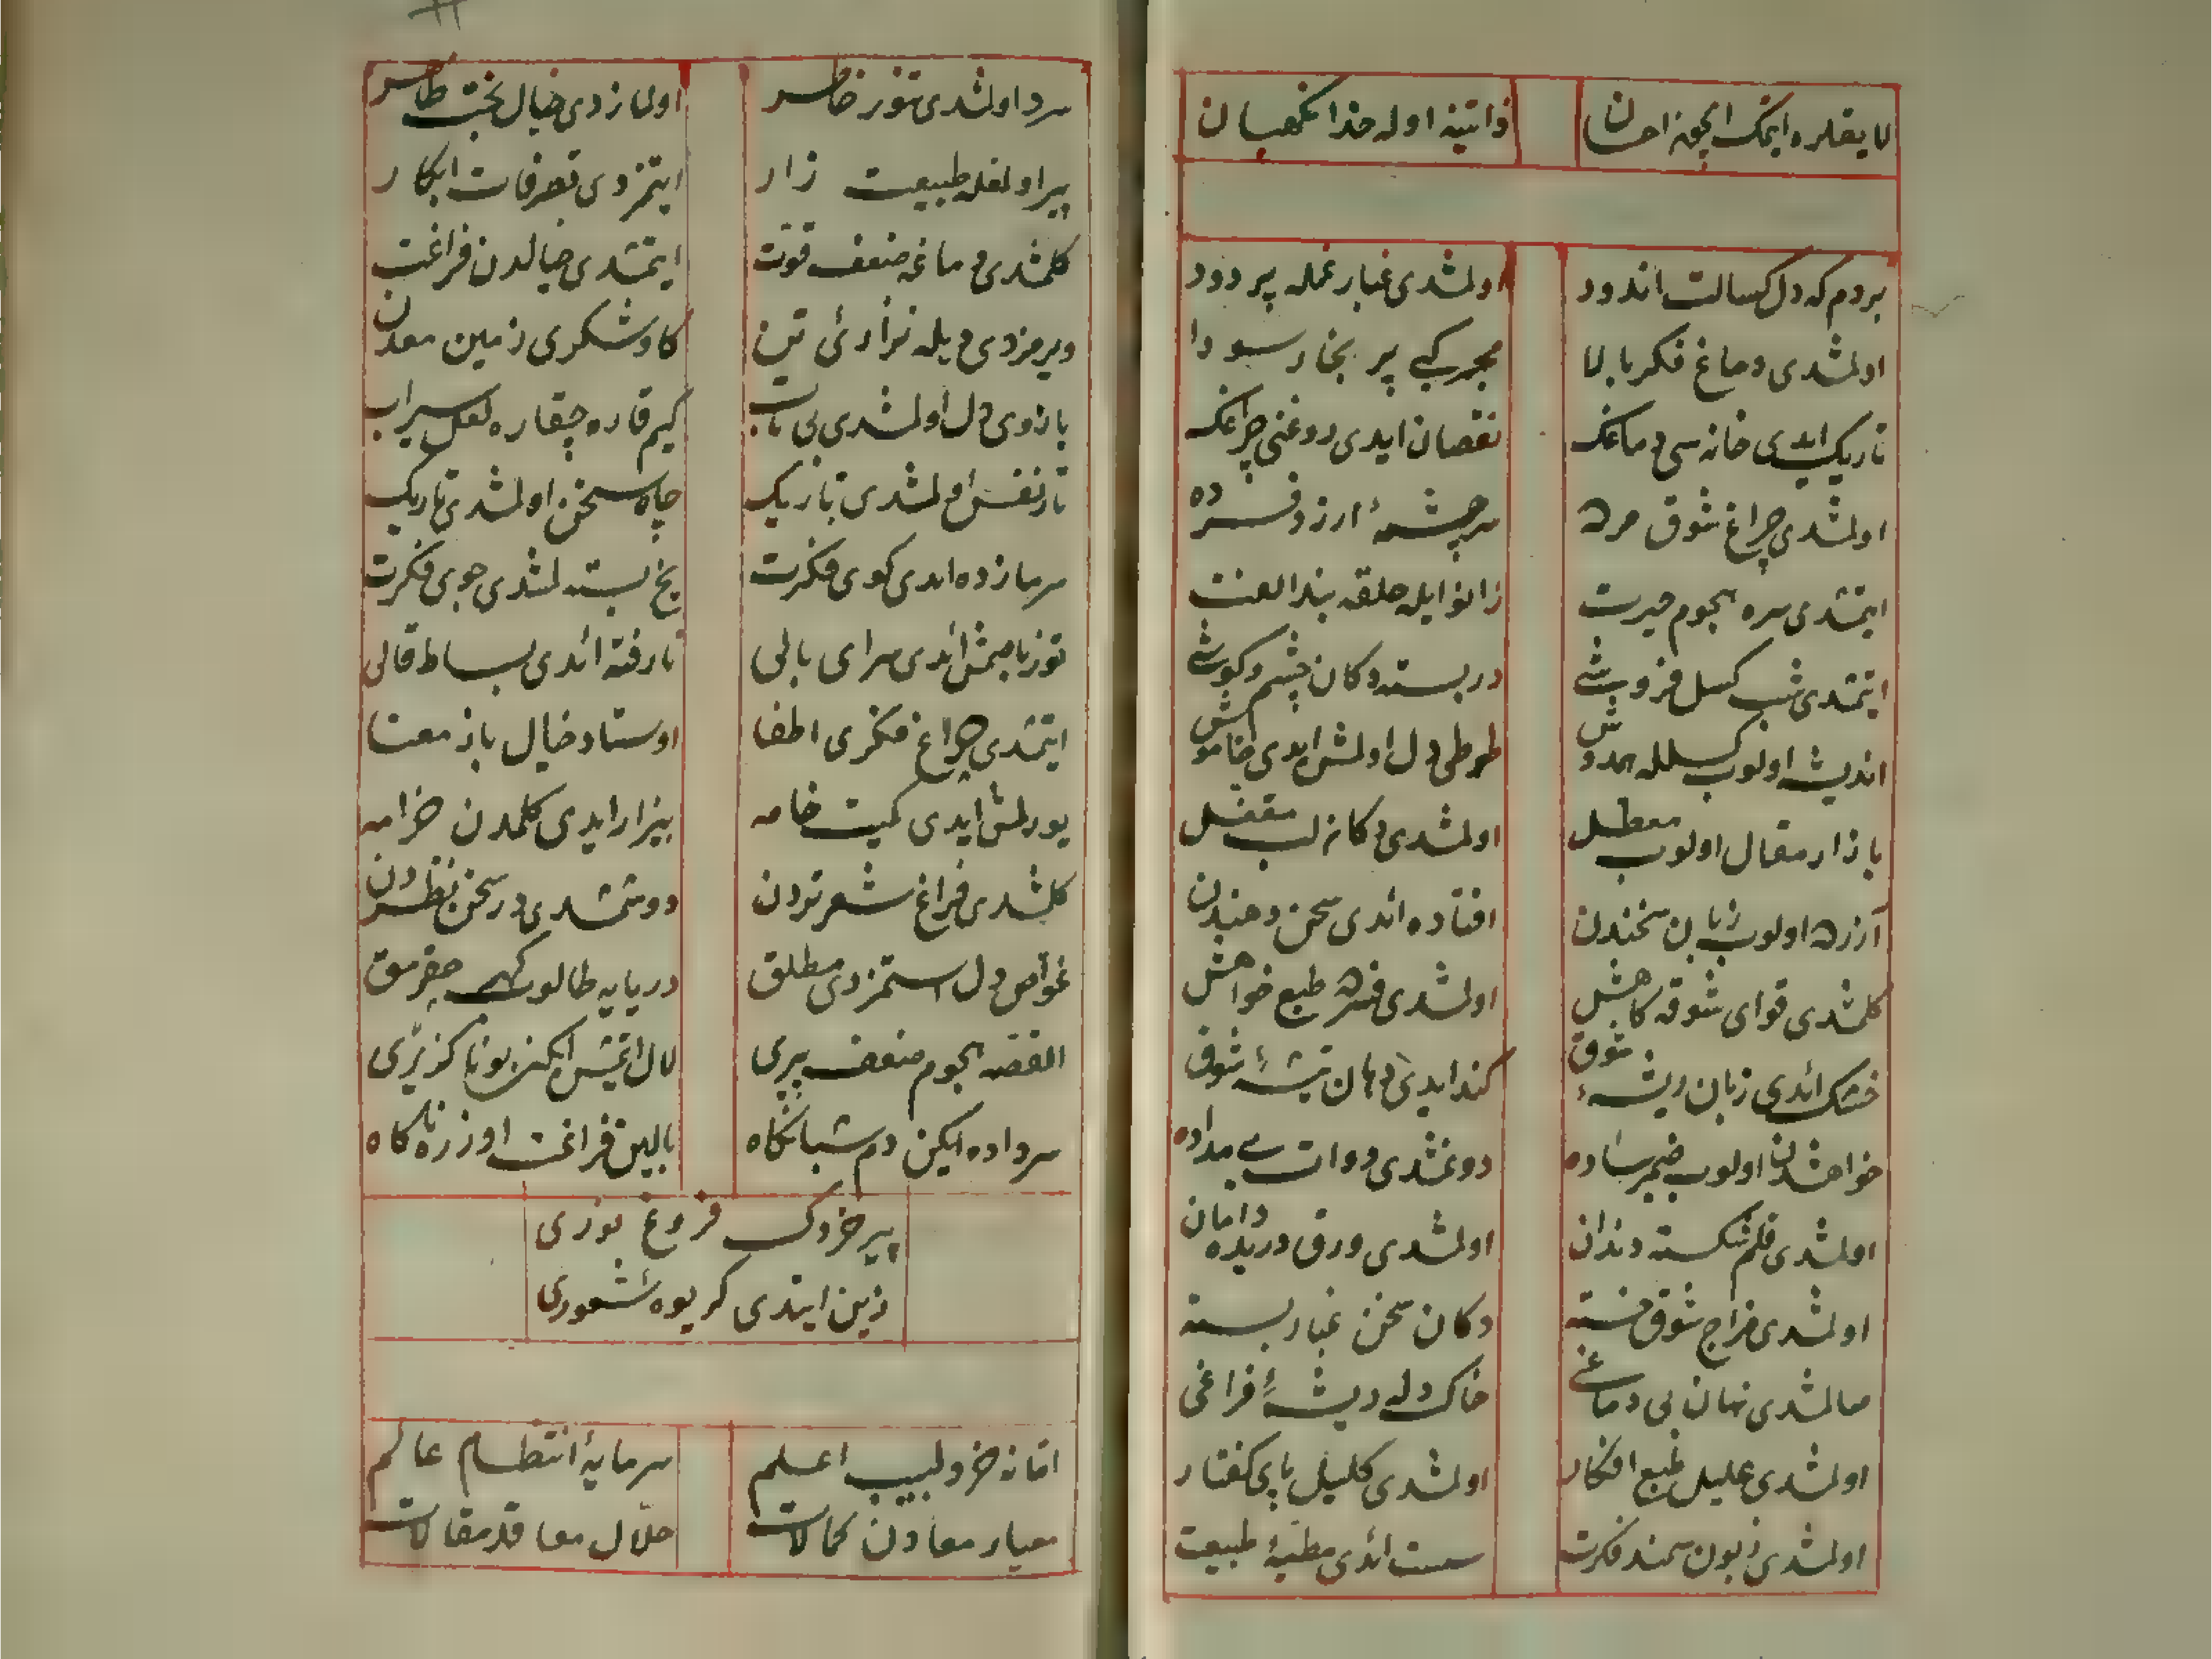 لایقلره ایمک ایچون احسان ذاتینه اوله خدا نکهبان
بردم که دل کسالت اندود اولمشدی غبار غمله پر دود
اولمشدی دماغ فکر بالا مجمر کبی پر بخار سودا
تاریک ایدی خانه سی دماغک نقصان ایدی روغنی چراغک
اولمشدی چراغ شوق مرده سرچشمهٔ ارزو فسرده
ایتمشدی سره هجوم حیرت زانو ایله حلقه بند الفت
ایتمشدی شب کسل فروشی در بسته دکان چشم و کوشی
اندیشه اولوب کسلله همدوش طوطی دل اولمش ایدی خاموش
بازار مقال اولوب معطل اولمشدی دکان لب مقفل
آزرده اولوب زبان سخندن افتاده ائدی سخن دهندن
کلمشدی قوای شوقه کاهش اولمشدی فسرده طبع خواهش
خشک ائدی زبان ریشهٔ شوق کند ایدی دهان تیشهٔ شوق
خواهشدن اولوب ضمیر ساده دونمشدی دوات بی مداده
اولمشدی قلم شکسته دندان اولمشدی ورق دریده دامان
اولمشدی مزاج شوق خسته دکان سخن غبار بسته
صالمشدی نهان بی دماغی خاک دله ریشهٔ فراغی
اولمشدی علیل طبع افکار اولمشدی کلیل پای کفتار
اولمشدی زبون سمند فکرت سست ائدی مطیهٔ طبیعت
سرد اولمشدی تنور خاطر اولمازدی خیال پخت ظاهر
پیر اولمغله طبیعت زار ایتمزدی تصرفات ابکار
کلمشدی دماغه ضعف قوت ایتمشدی خیالدن فراغت
ویرمزدی دیله نزارئ تن کاوشکری زمین معدن
بازوی دل اولمشدی بی تاب کیم قاره چقاره لعل سیراب
تار نفس اولمشدی باریک چاه سخن اولمشدی تاریک
سرمازده ایدی کوی فکرت یخ بسته لمشدی جوی فکرت
توز باصمش ائدی سرای بالی نارفته ائدی بساط قالی
ایتمشدی چراغ فکری اطفا اوستاد خیال باز معنا
یورلمش ایدی کمیت خامه بیزار ایدی کلمدن خرامه
کلمشدی فراغ شعر تردن دوشمشدی در سخن نظردن
غواص دل استمزدی مطلق دریایه طالوب کهر چقرمق
القصه هجوم ضعف پیری لال ایتمش ایکن بو ناکزیری
سر داده ایکن دم شبانکاه بالین فراغت اوزره ناکاه
پیر خردک فروغ یوزی
زین ایتدی کریوه شعوری
اقانه خرد لبیب اعلم سرمایهٔ انتظام عالم
معیار معادن کمالات حلّال معاقد مقالات